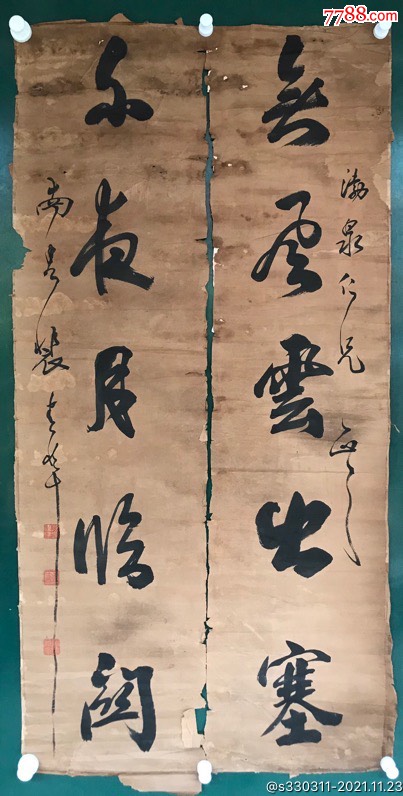 7788.com
渤泉仁兄 正之
無風雲出塞
不夜月臨關
南昌裴
@s330311-2021.11.23